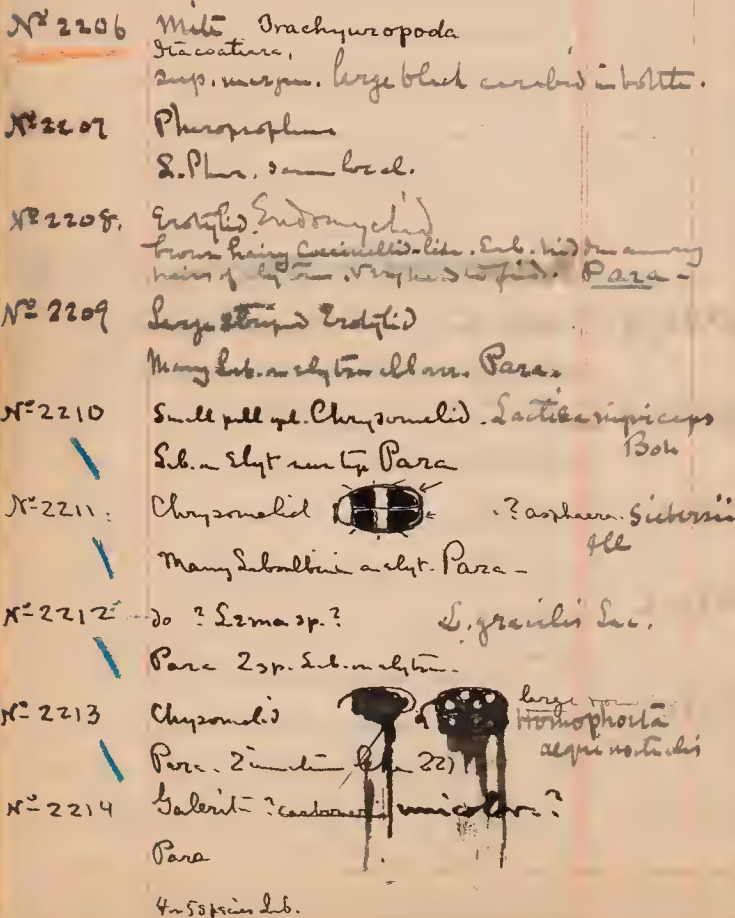 Nº 2206 Mite Trachyuropoda
Itacoatiara,
sup. margin. large black carabid in bottle.
Nº 2207 Pheropsophus
L. Pher. same local.
Nº 2208. Erotylid. Endomychid
brown hairy Coccinellid-like. Lab. hidden among
hairs of elytron. Very hard to find. Para -
Nº 2209 Large striped Erotylid
Many Lab. on elytron all over. Para.
Nº 2210 Small yel. Chrysomelid. Lactica
Boh
Lab. on Elyt near tip Para
Nº 2211. Chrysomelid ? asphaera. Siebersii
Ill
Many on elyt. Para -
Nº 2212 do ? Lema sp.? L. gracilis Lac.
Para 2 sp. Lab. on elytron.
Nº 2213 Chrysomelid large
Homophoeta
aequinoctialis
Para. 221
Nº 2214 Galerit ? unicolor?
Para
4 or 5 species Lab.